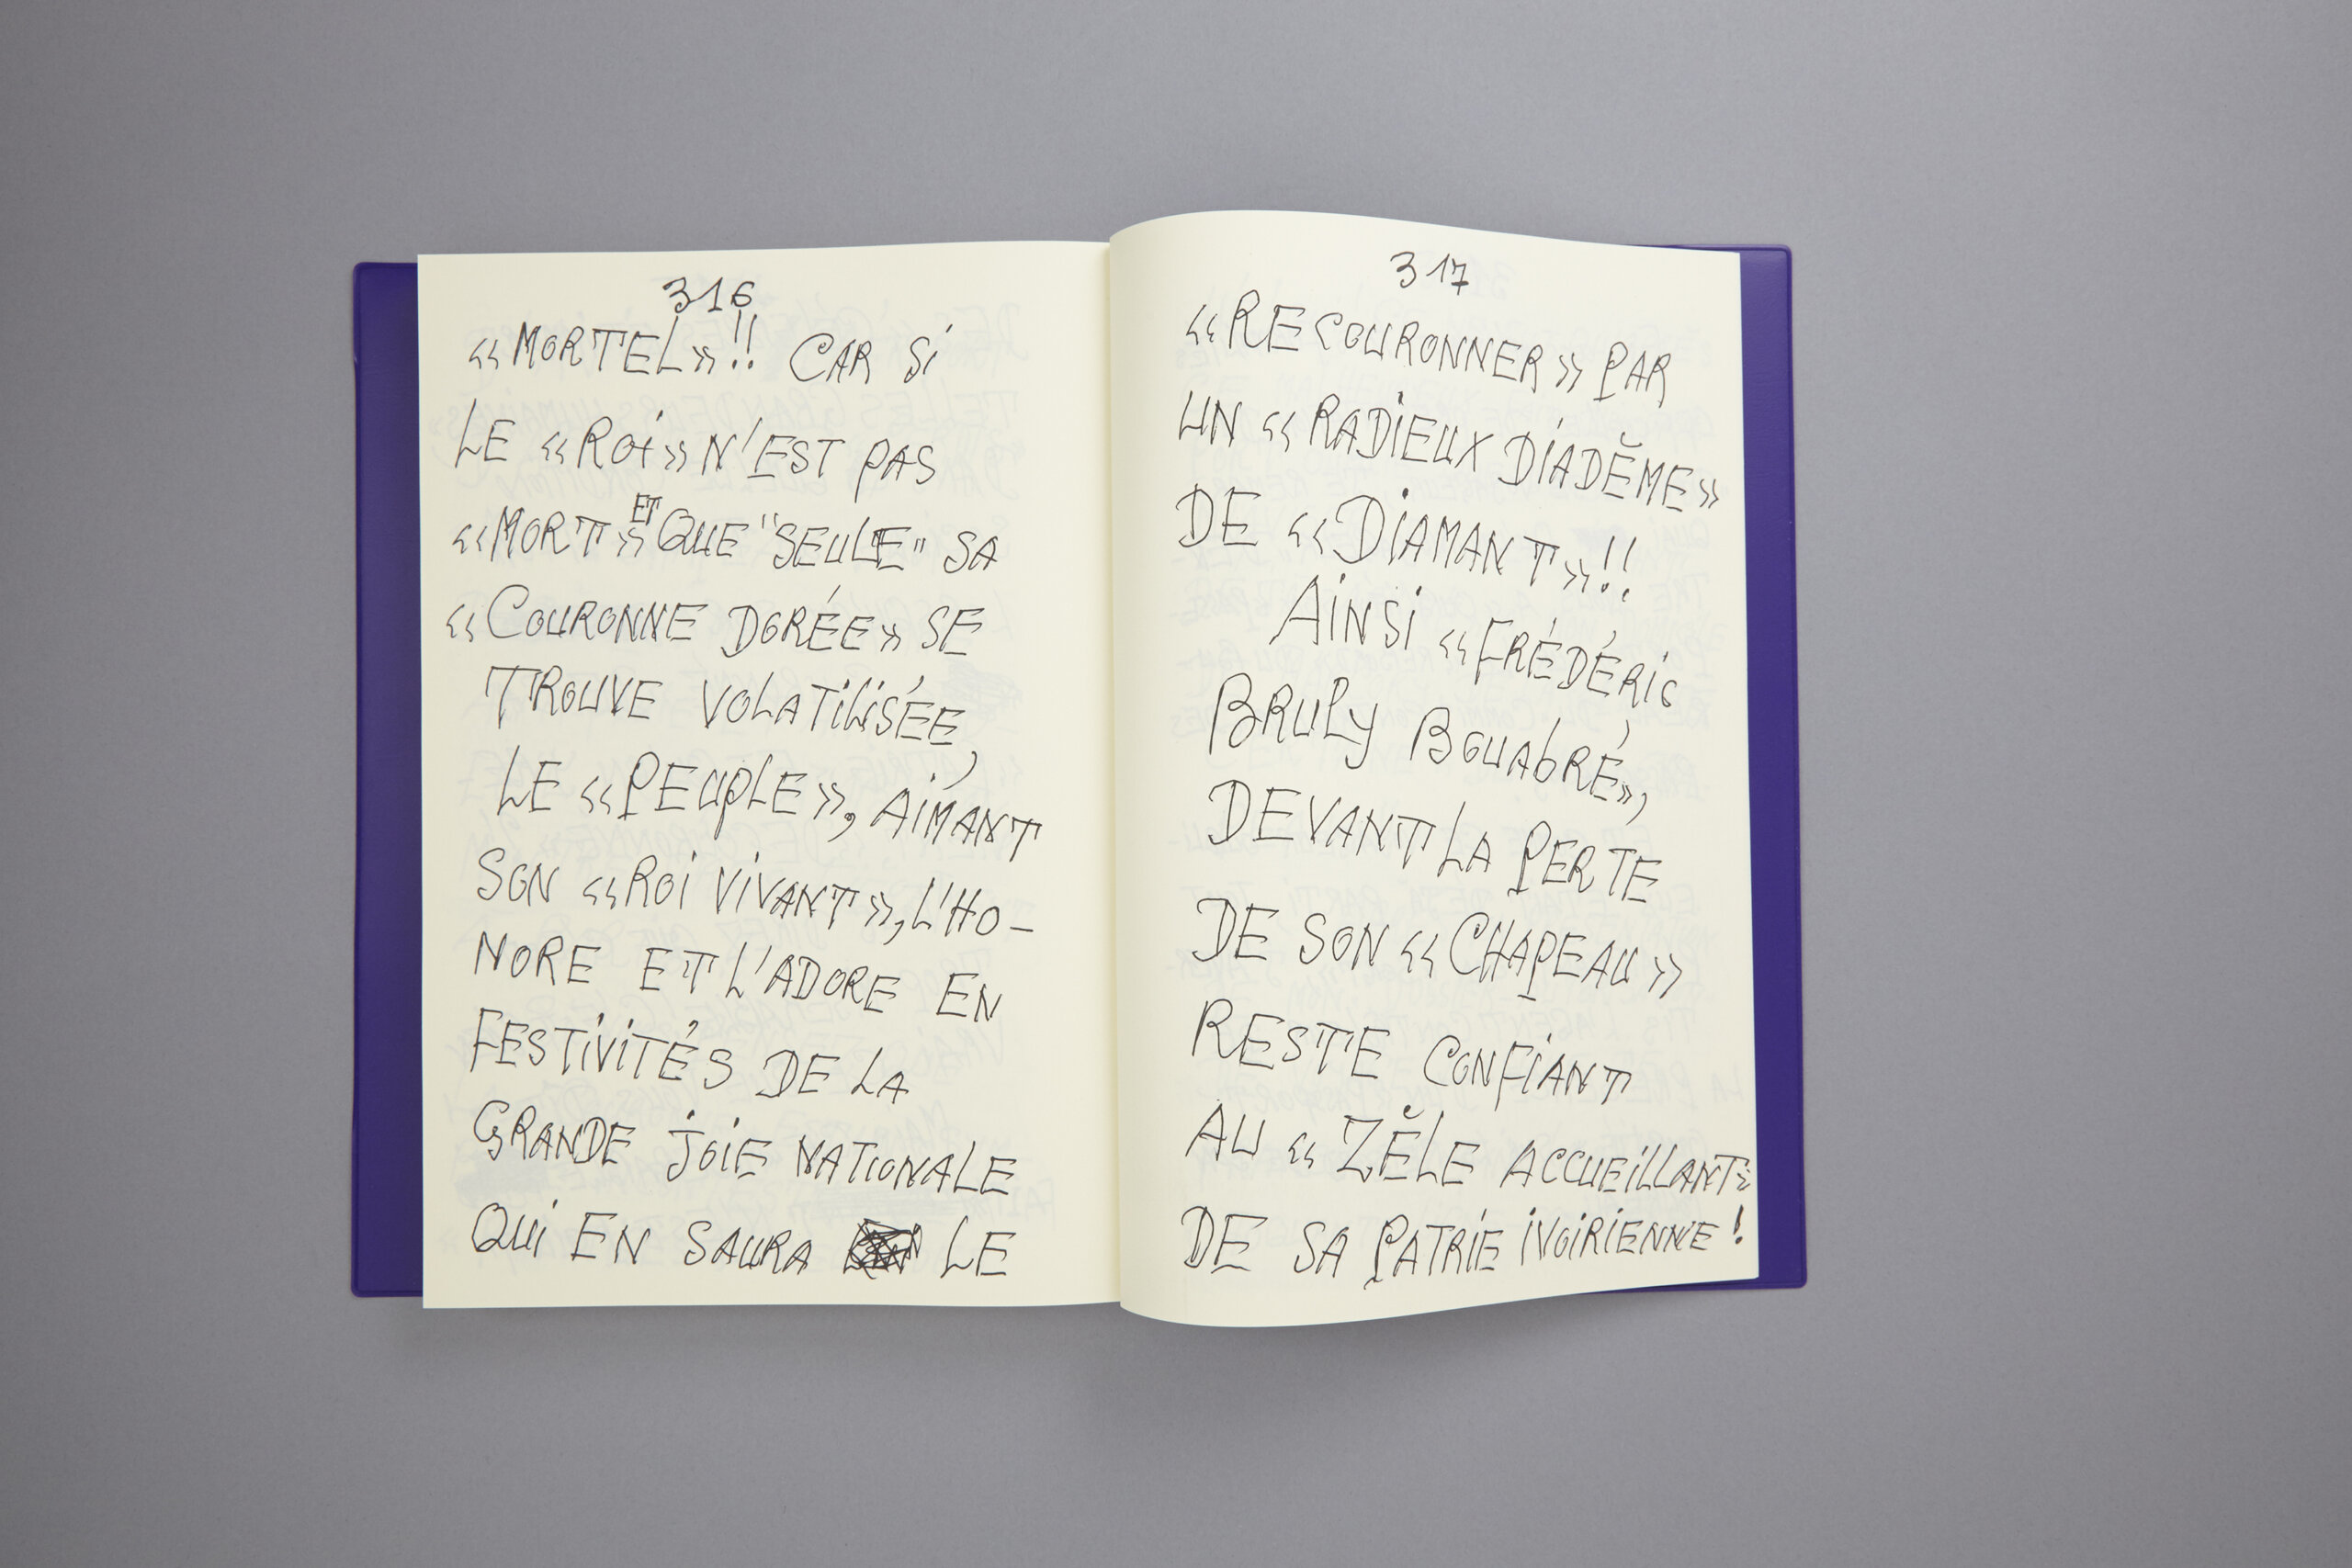 316
«MORTEL»!! CAR Si
LE «ROi» N'EST PAS
«MORT» ET QUE "SEULE" SA
«COURONNE DORÉE» SE
TROUVE VOLATiLiSÉE,
LE «PEUPLE», AiMANT
SON «ROi ViVANT», L'HO-
NORE ET L'ADORE EN
FESTiViTÉS DE LA
GRANDE JOiE NATIONALE
QUi EN SAURA LE
317
«RECOURONNER» PAR
UN «RADiEUX DiADĔME»
DE «DiAMANT»!!
AiNSi «FRÉDÉRiC
BRULY BOUABRÉ»,
DEVANT LA PERTE
DE SON «CHAPEAU»
RESTE CONFiANT
AU «ZĔLE ACCUEiLLANT»
DE SA PATRiE iVOiRiENNE!